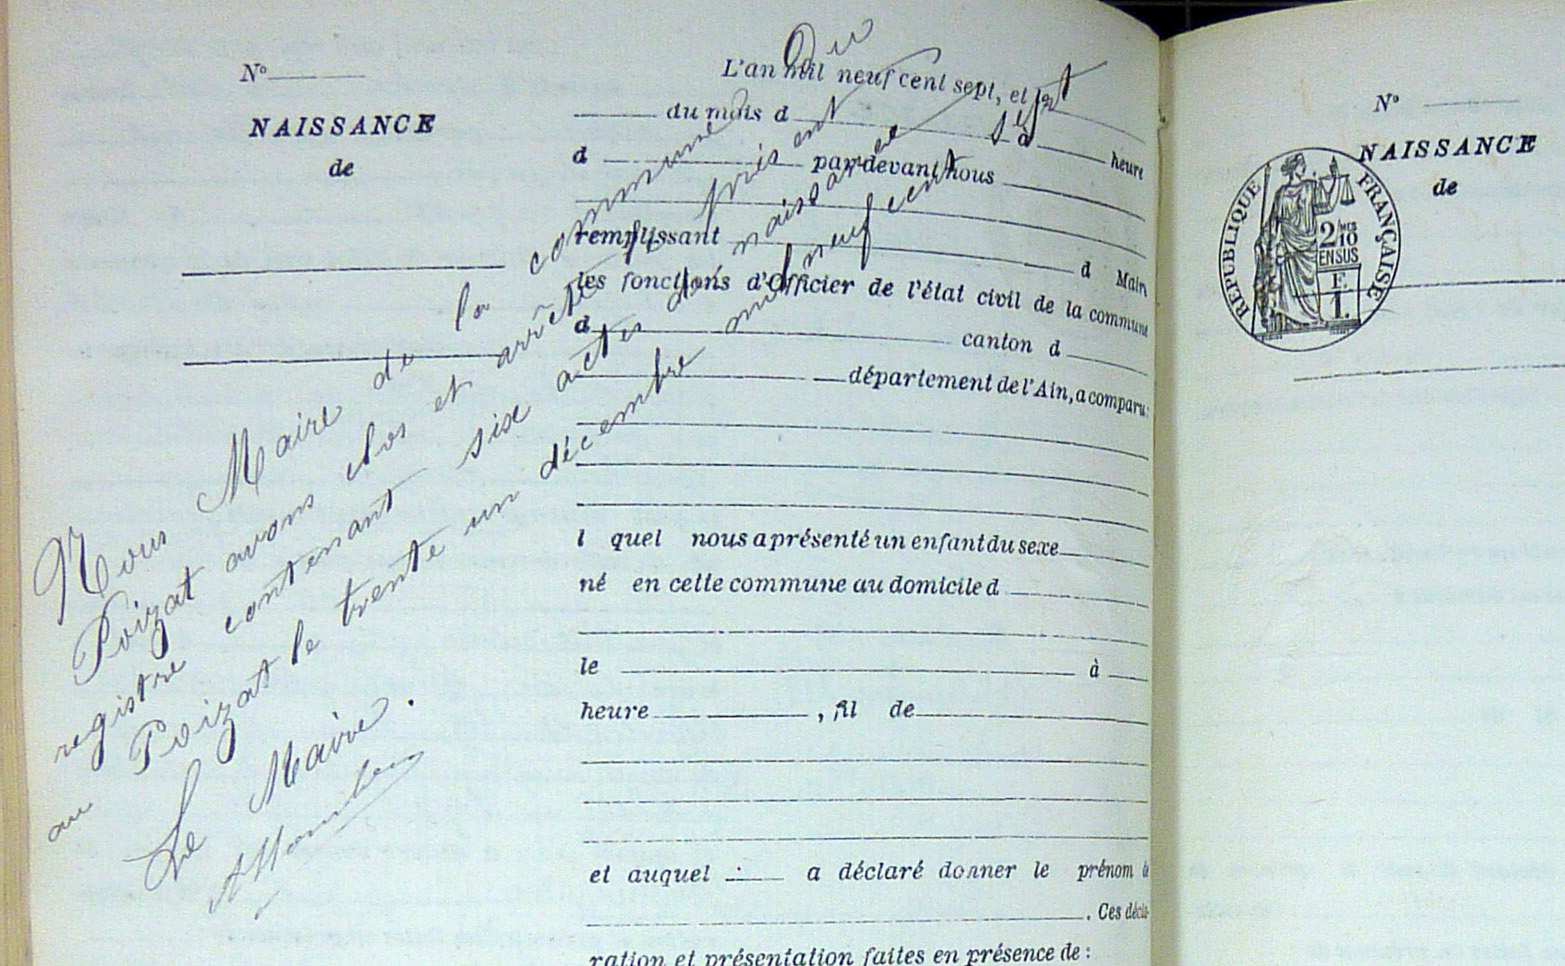 N°
NAISSANCE
de
L'an mil neuf cent sept, et
du mois d à heure
d par devant nous
remplissant d Maire
les fonctions d'Officier de l'état civil de la commune
d canton d
département de l'Ain, a comparu:
l quel nous a présenté un enfant du sexe
né en cette commune au domicile d
le à
heure , fil de
et auquel a déclaré donner le prénom d
. Ces décla-
ration et présentation faites en présence de :
Nous Maire de la commune du
Poizat avons clos et arrêté le présent
registre contenant six actes de naissance
au Poizat le trente un décembre mil neuf cent sept
Le Maire.
N°
NAISSANCE
de
RÉPUBLIQUE FRANÇAISE
2 MES 10
EN SUS
F.
1.